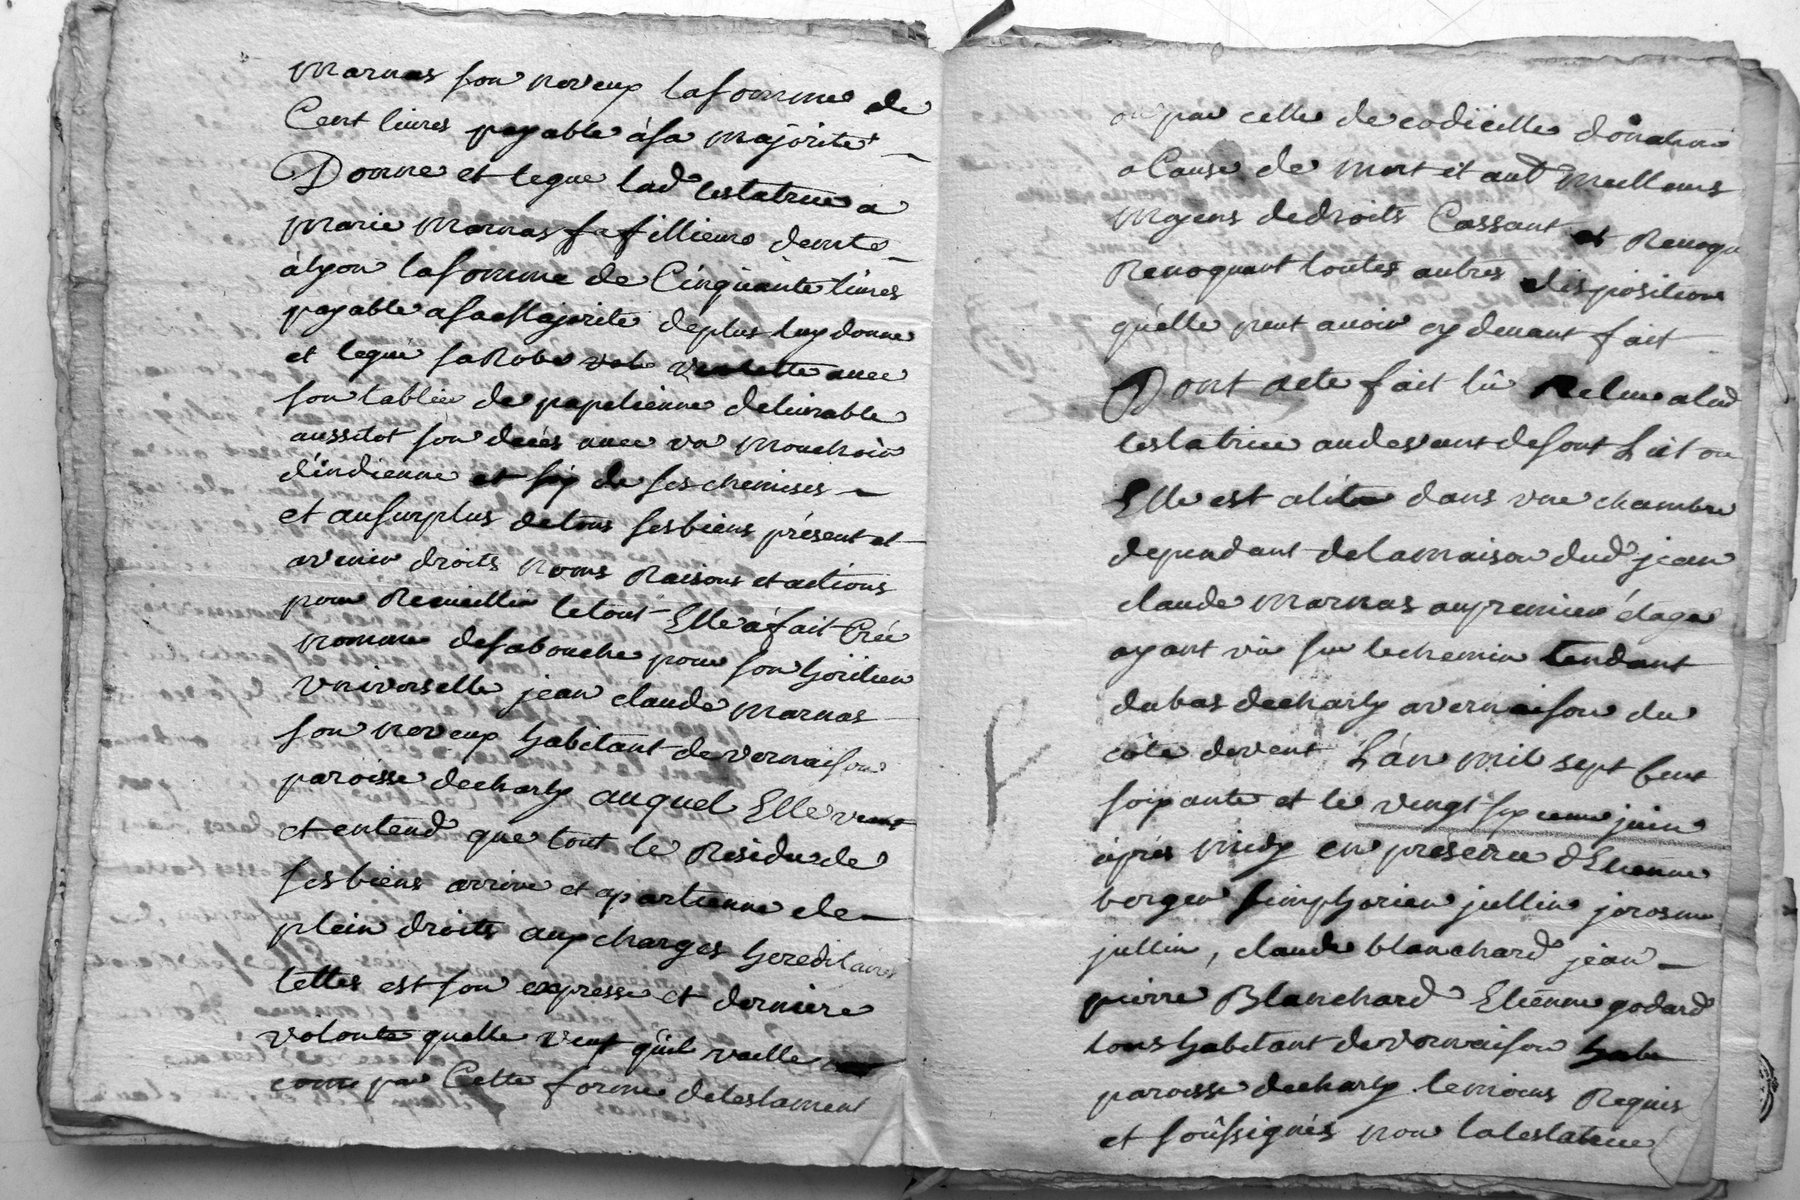 marnas son neveux la somme de
Cent livres payable à sa majorité
Donne et legue lad testatrice a
marie marnas sa fillieus demte
à lyon la somme de Cinquante livres
payable a sa Majorite de plus luy donne
et legue sa Robe violette avec
son tablier de papelienne delivrable
aussitot son decés avec un mouchoir
d'indienne et six de ses chemises
et au surplus de tous ses biens présent et
avenir droits noms Raisons et actions
pour Recueillir le tout Elle a fait Créé
nomme de sa bouche pour son héritier
universelle jean claude marnas
son neveux habitant de vernaison
paroisse de charly auquel Elle veut
et entend que tout le Residu de
ses biens arrive et apartienne de
plein droits aux charges hereditaires
telles est son expresse et derniere
volonte quelle veut quil vaille
come par Cette forme de testament
ou par celle de codicille donation
a Cause de mort et aud meilleurs
moyens de droits Cassant et Revoqu
Revoquant toutes autres dispositions
quelle peut avoir cy devant fait
Dont acte fait lû Relue a lad
testatrice au devant de sont Lit ou
Elle est alitée dans une chambre
dependant de la maison dud jean
claude marnas au premier étage
ayant vüe sur le chemin tendant
du bas de charly a vernaison du
coté de vent L'an mil sept Cent
soixante et le vingt six eme juin
aprés midy en presence d'Etienne
berger simphorien jullin jerosme
jullin, claude blanchard jean
pierre Blanchard Etienne godard
tous habitant de vernaison
paroisse de charly temoins Requis
et soûssignés non la testatrice